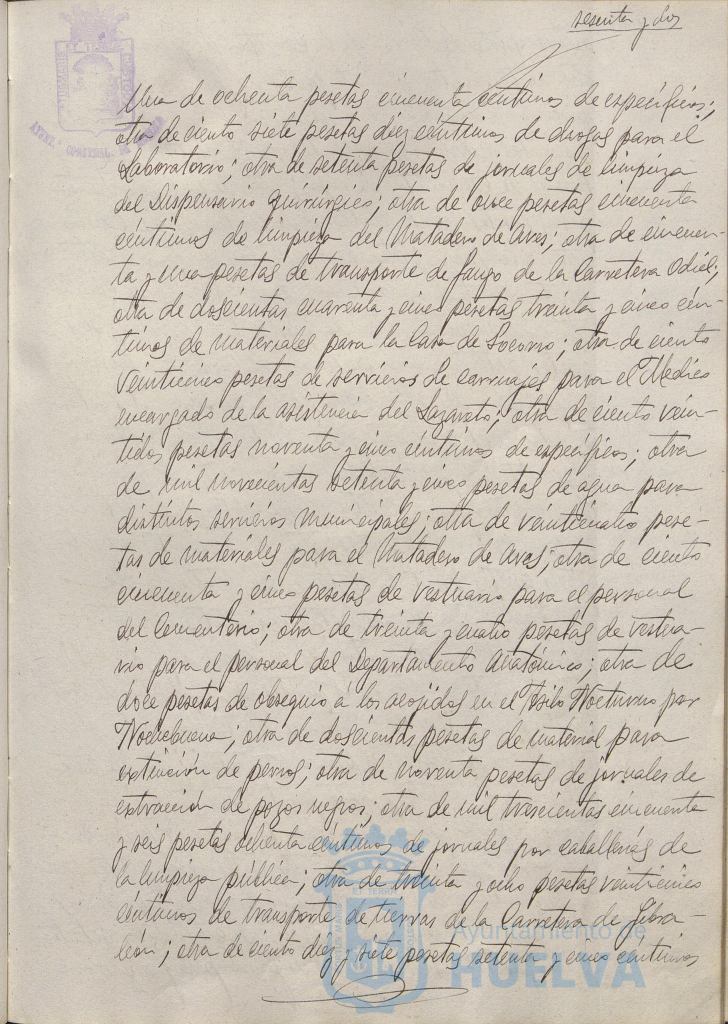 sesenta y dos
Una de ochenta pesetas cincuenta céntimos de específicos;
otra de ciento siete pesetas diez céntimos de drogas para el
Laboratorio; otra de setenta pesetas de jornales de limpieza
del Dispensario quirúrgico; otra de once pesetas cincuenta
céntimos de limpieza del Matadero de Aves; otra de cincuen-
ta y una pesetas de transporte de fango de la Carretera Odiel;
otra de doscientas cuarenta y cinco pesetas treinta y cinco cén-
timos de materiales para la Casa de Socorro; otra de ciento
veinticinco pesetas de servicios de carruajes para el Médico
encargado de la asistencia del Lazareto; otra de ciento vein-
tidos pesetas noventa y cinco céntimos de específicos; otra
de mil novecientas setenta y cinco pesetas de agua para
distintos servicios municipales; otra de veinticuatro pese-
tas de materiales para el Matadero de Aves; otra de ciento
cincuenta y cinco pesetas de vestuario para el personal
del Cementerio; otra de treinta y cuatro pesetas de vestua-
rio para el personal del Departamento Anatómico; otra de
doce pesetas de obsequio á los acojidos en el Asilo Nocturno por
Nochebuena; otra de doscientas pesetas de material para
extinción de perros; otra de noventa pesetas de jornales de
extracción de pozos negros; otra de mil trescientas cincuenta
y seis pesetas ochenta céntimos de jornales por caballerías de
la limpieza pública; otra de treinta y ocho pesetas veinticinco
céntimos de transporte de tierras de la Carretera de Gibra-
león; otra de ciento diez y siete pesetas setenta y cinco céntimos
Ayuntamiento de
HUELVA